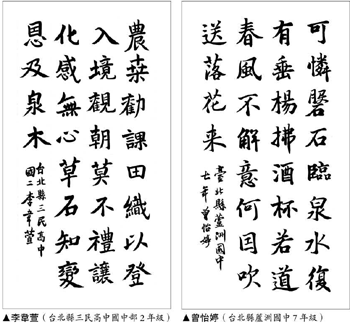 可憐磐石臨泉水復
有垂楊拂酒杯若道
春風不解意何因吹
送落花来
臺北縣蘆洲國中
七年曾怡婷
▲曾怡婷（台北縣蘆洲國中7年級）
農桑勸課田織以登
入境觀朝莫不禮讓
化感無心草石知變
恩及泉木
台北縣三民高中
國二李韋萱
▲李韋萱（台北縣三民高中國中部2年級）